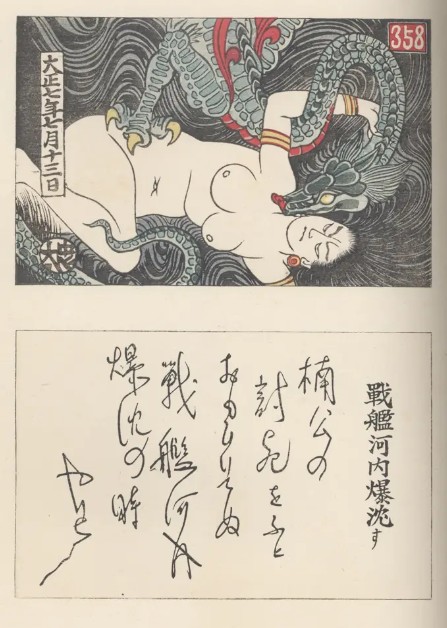 358
大正七年七月十三日
戰艦河内爆沈す
楠公の
討死をふと
おもひいでぬ
戰艦河内
爆沈の時